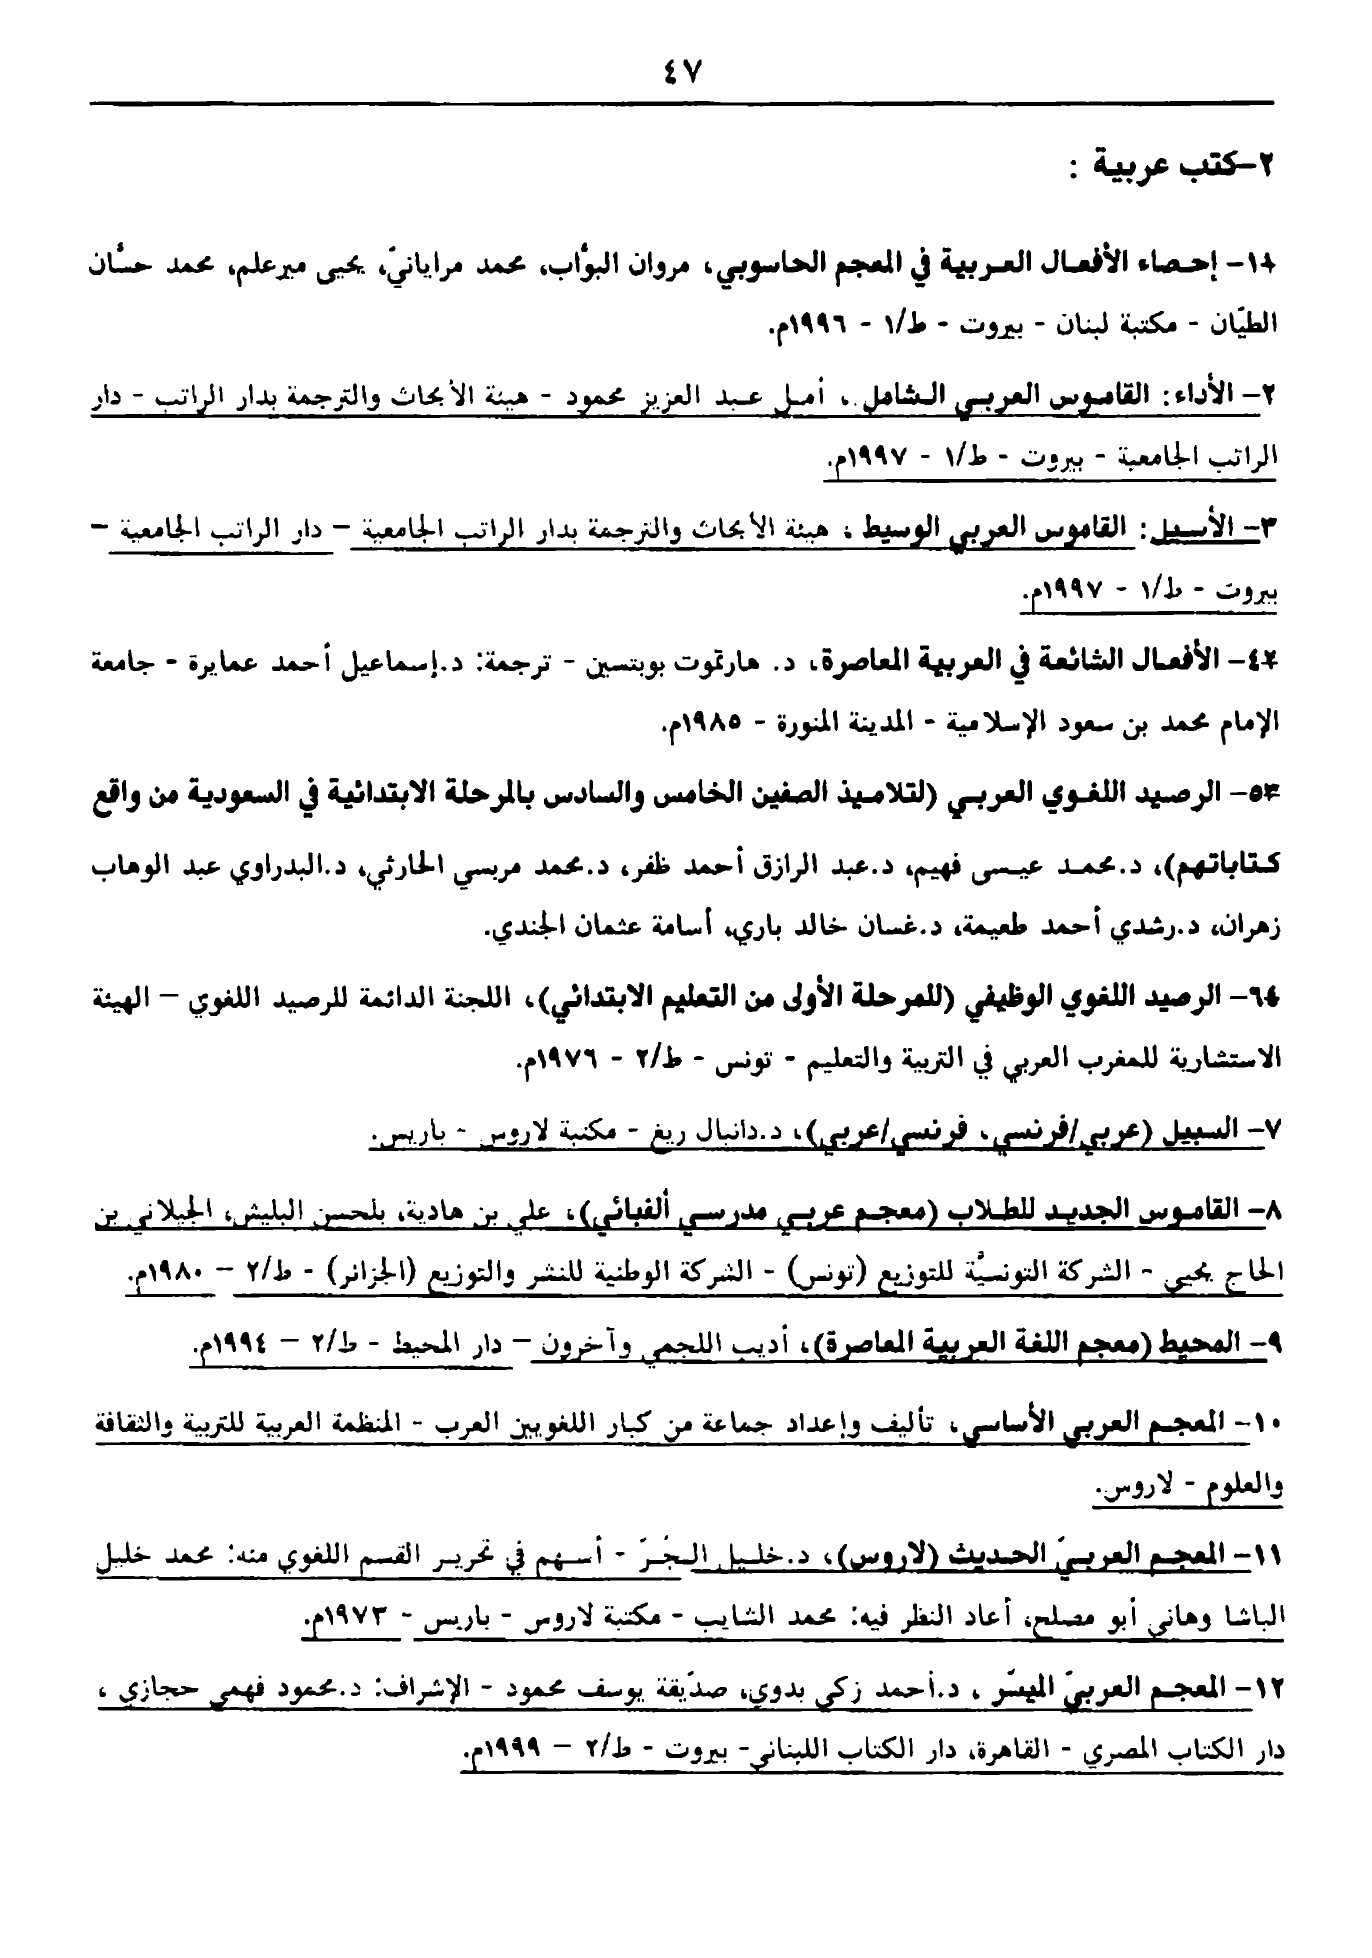 ٤٧
٢-كتب عربية :
١- إحصاء الأفعال العربية في المعجم الحاسوبي، مروان البوَّاب، محمد مراياتيّ، يحيى ميرعلم، محمد حسَّان
الطيّان - مكتبة لبنان - بيروت - ط/١ - ١٩٩٦م.
٢- الأداء: القاموس العربي الشامل ، أمل عبد العزيز محمود - هيئة الأبحاث والترجمة بدار الراتب - دار
الراتب الجامعية - بيروت - ط/١ - ١٩٩٧م.
٣- الأسيل: القاموس العربي الوسيط ، هيئة الأبحاث والترجمة بدار الراتب الجامعية – دار الراتب الجامعية –
بيروت - ط/١ - ١٩٩٧م.
٤- الأفعال الشائعة في العربية المعاصرة، د. هارتموت بوبتسين - ترجمة: د.إسماعيل أحمد عمايرة - جامعة
الإمام محمد بن سعود الإسلامية - المدينة المنورة - ١٩٨٥م.
٥- الرصيد اللغوي العربي (لتلاميذ الصفين الخامس والسادس بالمرحلة الابتدائية في السعودية من واقع
كتاباتهم)، د.محمد عيسى فهيم، د.عبد الرازق أحمد ظفر، د.محمد مريسي الحارثي، د.البدراوي عبد الوهاب
زهران، د.رشدي أحمد طعيمة، د.غسان خالد باري، أسامة عثمان الجندي.
٦- الرصيد اللغوي الوظيفي (للمرحلة الأولى من التعليم الابتدائي)، اللجنة الدائمة للرصيد اللغوي – الهيئة
الاستشارية للمغرب العربي في التربية والتعليم - تونس - ط/٢ - ١٩٧٦م.
٧- السبيل (عربي/فرنسي، فرنسي/عربي)، د.دانيال ريغ - مكتبة لاروس - باريس.
٨- القاموس الجديد للطلاب (معجم عربي مدرسي ألفبائي)، علي بن هادية، بلحسن البليش، الجيلاني بن
الحاج يحيى - الشركة التونسيَّة للتوزيع (تونس) - الشركة الوطنية للنشر والتوزيع (الجزائر) - ط/٢ – ١٩٨٠م.
٩- المحيط (معجم اللغة العربية المعاصرة)، أديب اللجمي وآخرون – دار المحيط - ط/٢ – ١٩٩٤م.
١٠- المعجم العربي الأساسي، تأليف وإعداد جماعة من كبار اللغويين العرب - المنظمة العربية للتربية والثقافة
والعلوم - لاروس.
١١- المعجم العربيّ الحديث (لاروس)، د.خليل الجُرّ - أسهم في تحرير القسم اللغوي منه: محمد خليل
الباشا وهاني أبو مصلح، أعاد النظر فيه: محمد الشايب - مكتبة لاروس - باريس - ١٩٧٣م.
١٢- المعجم العربيّ الميسّر ، د.أحمد زكي بدوي، صدّيقة يوسف محمود - الإشراف: د.محمود فهمي حجازي ،
دار الكتاب المصري - القاهرة، دار الكتاب اللبناني- بيروت - ط/٢ – ١٩٩٩م.